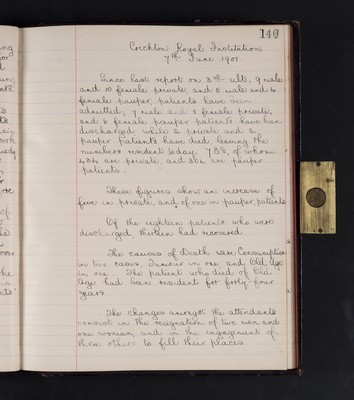 140
Crichton Royal Institution
7th June 1901.
Since last report on 3rd ulto, 9 male
and 10 female private, and 5 male and 4
female pauper patients have been
admitted; 7 male and 5 female private,
and 6 female pauper patients have been
discharged while 2 private and 2
pauper patients have died, leaving the
numbers resident today, of whom
are private, and are pauper
patients.
These figures show an increase of
five in private, and of one in pauper patients
Of the eighteen patients who were
discharged thirteen had recovered.
The causes of Death were Consumption
in two cases, Tumour in one and Old Age
in one. The patient who died of Old
Age had been resident for forty four
years
The changes amongst the attendants
consist in the resignation of two men and
one woman, and in the engagement of
three others to fill their places